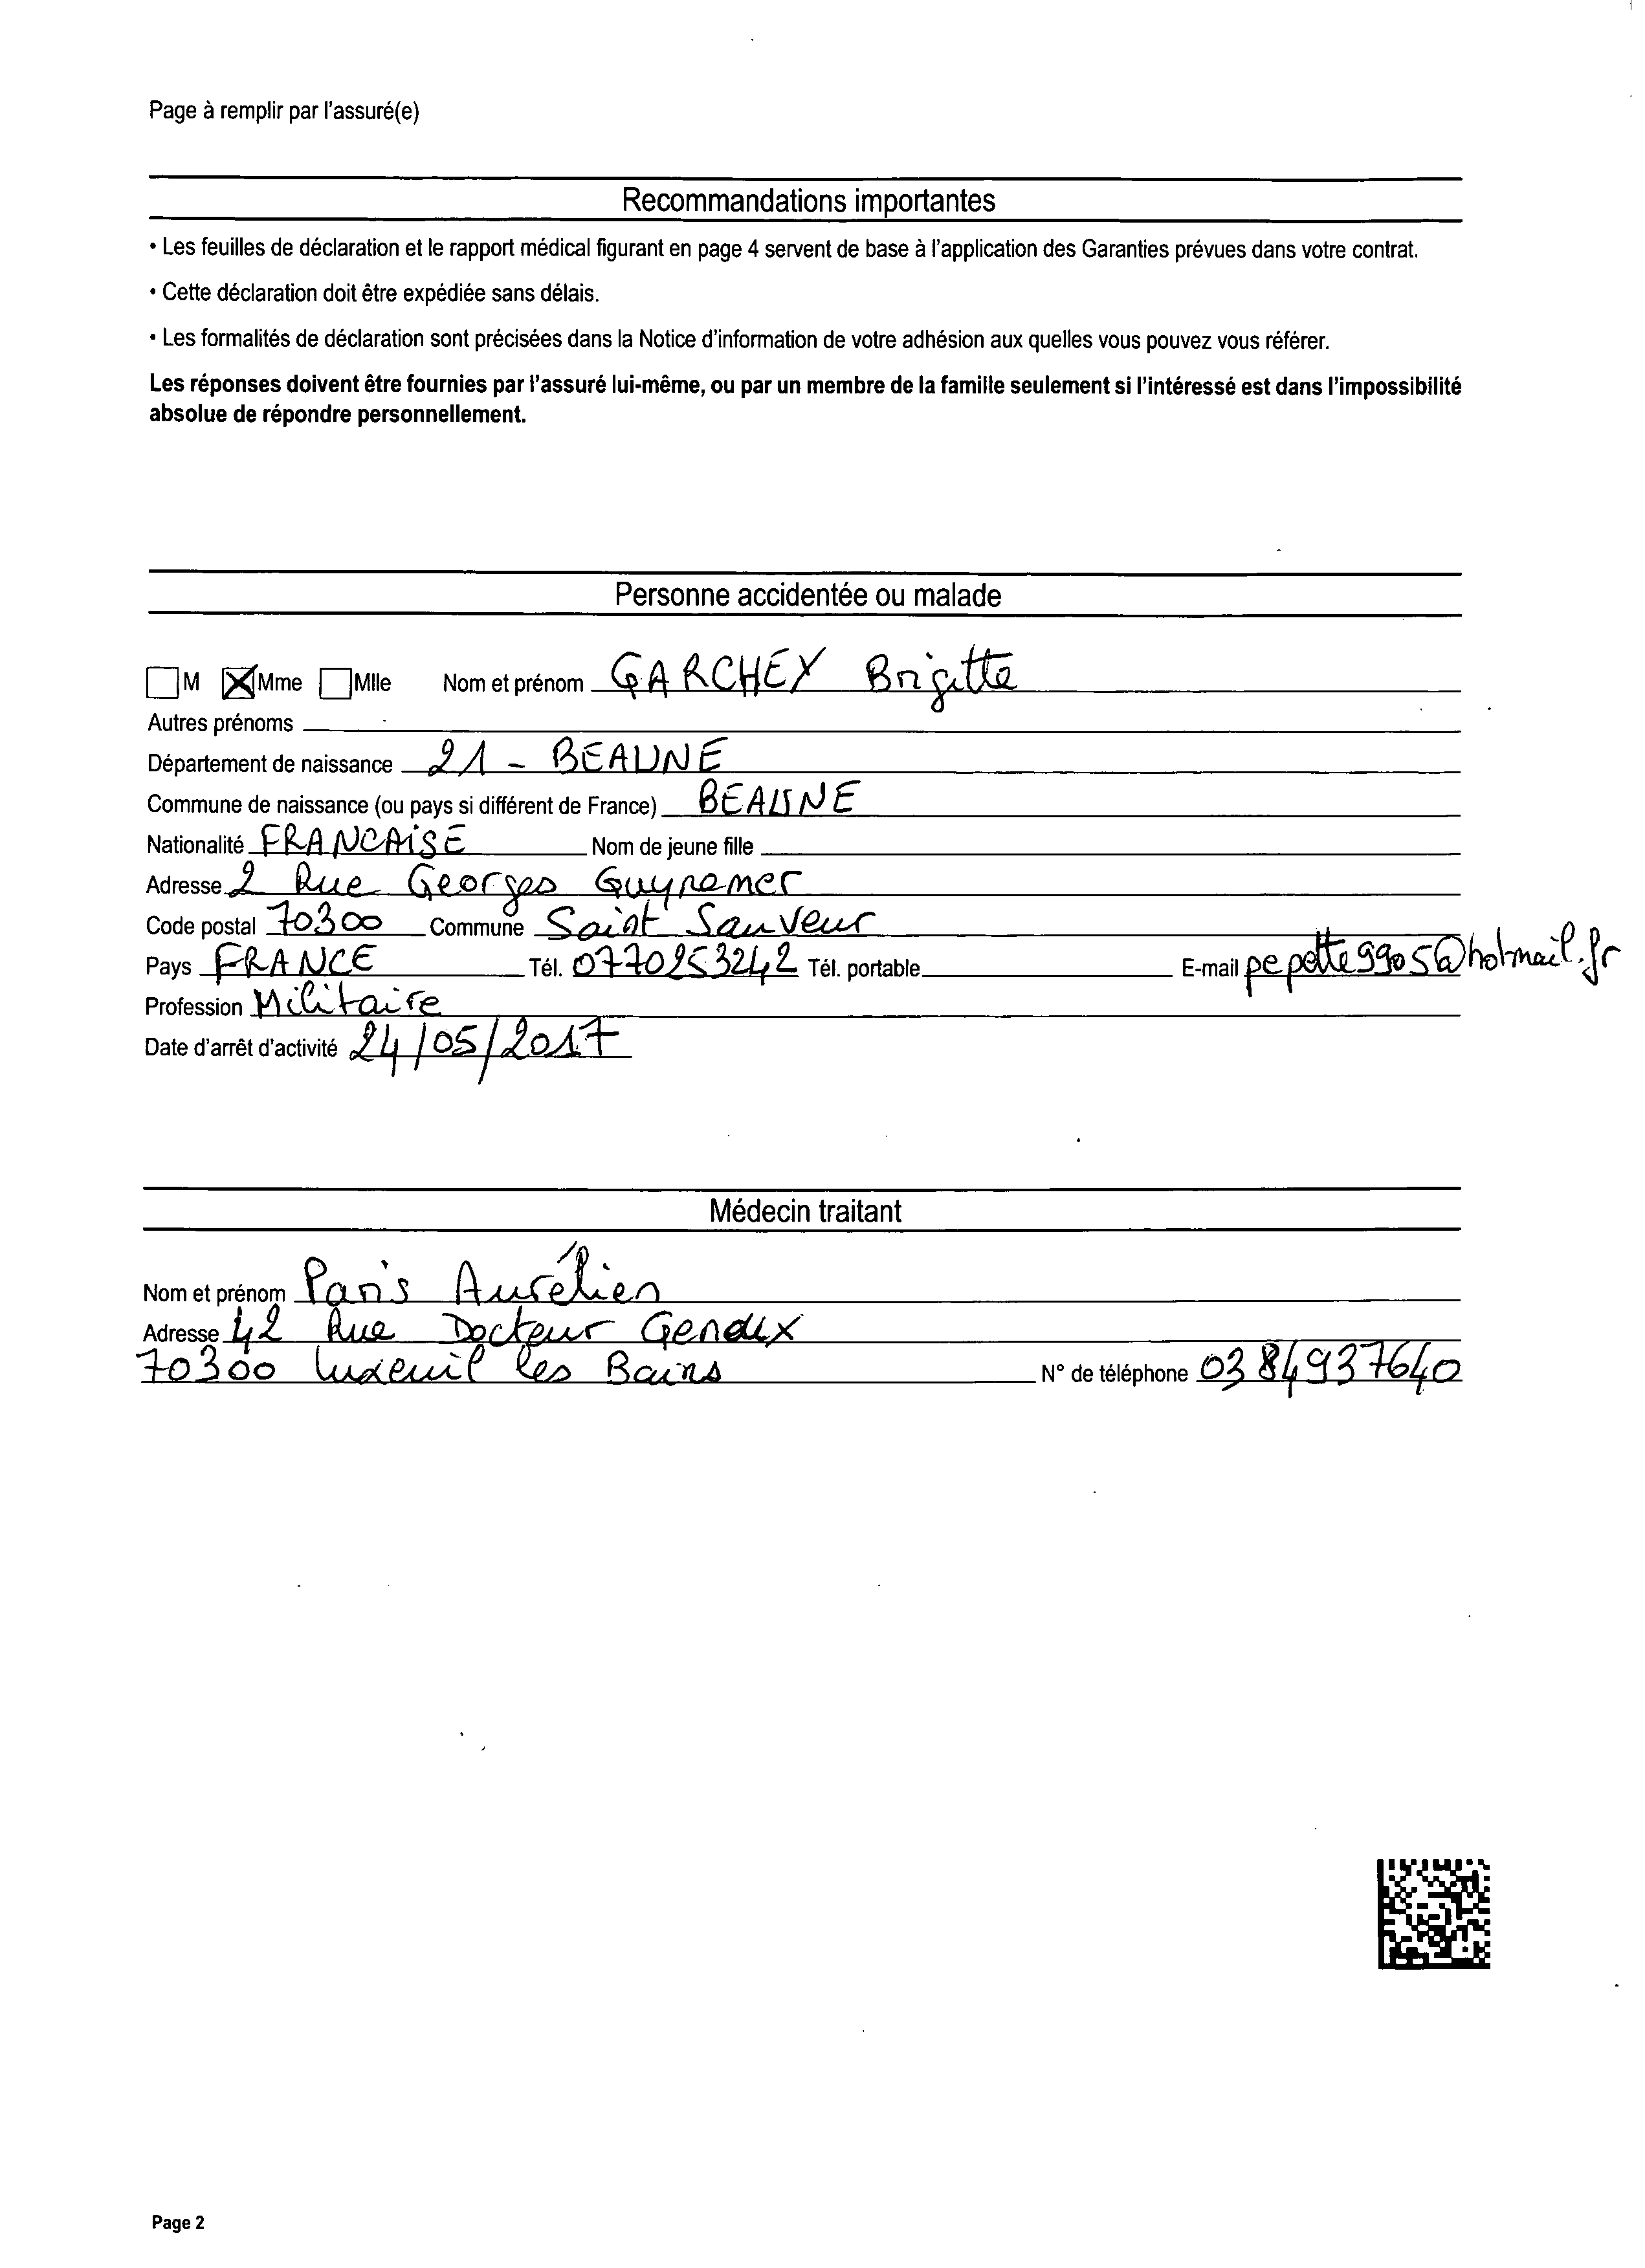 Page à remplir par l'assuré(e)
Recommandations importantes
• Les feuilles de déclaration et le rapport médical figurant en page 4 servent de base à l'application des Garanties prévues dans votre contrat.
• Cette déclaration doit être expédiée sans délais.
• Les formalités de déclaration sont précisées dans la Notice d'information de votre adhésion aux quelles vous pouvez vous référer.
Les réponses doivent être fournies par l'assuré lui-même, ou par un membre de la famille seulement si l'intéressé est dans l'impossibilité
absolue de répondre personnellement.
Personne accidentée ou malade
M Mme Mlle Nom et prénom GARCHEY Brigitte
Autres prénoms
Département de naissance 21 - BEAUNE
Commune de naissance (ou pays si différent de France) BEAUNE
Nationalité FRANCAISE Nom de jeune fille
Adresse 2 Rue Georges Guynemer
Code postal 70300 Commune Saint Sauveur
Pays FRANCE Tél. 0770253242 Tél. portable E-mail pepette9905@hotmail.fr
Profession Militaire
Date d'arrêt d'activité 24/05/2017
Médecin traitant
Nom et prénom Paris Aurélien
Adresse 42 Rue Docteur
70300 Luxeuil les Bains N° de téléphone 0384937640
Page 2